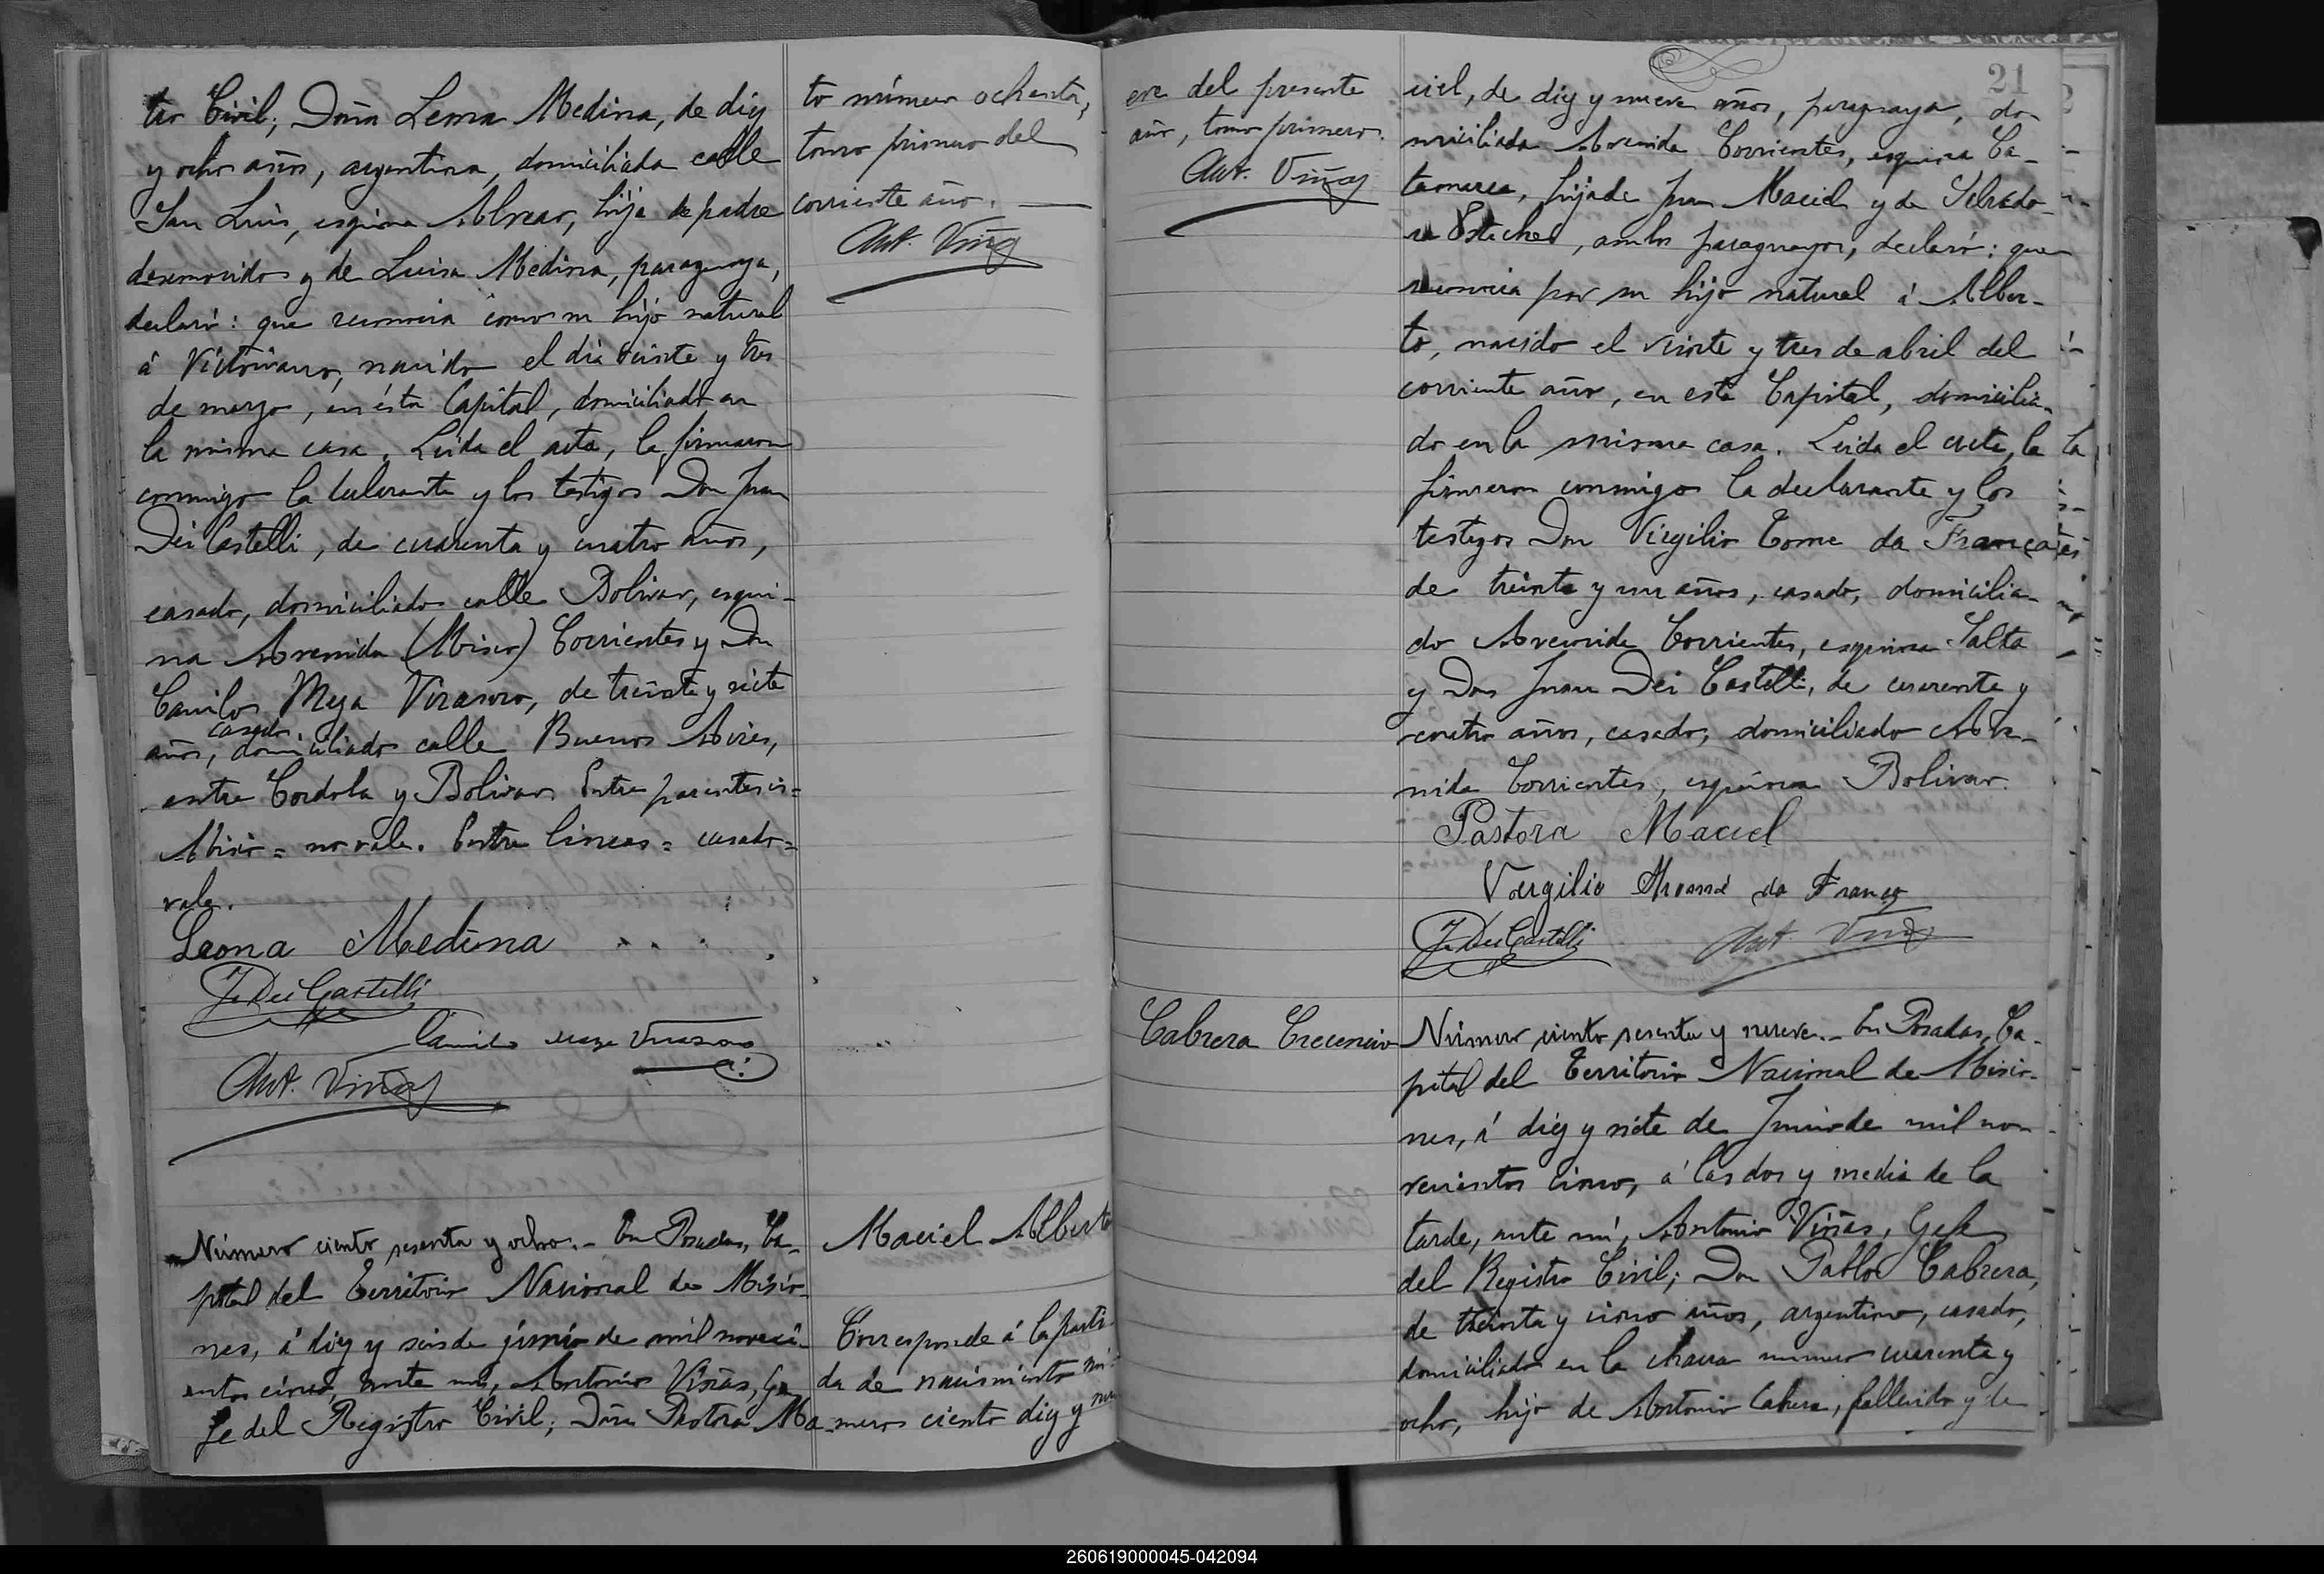 tro Civil; Doña Leona Medina, de diez
y ocho años, argentina, domiciliada calle
San Luis, esquina Alvear, hija de padre
desconocido y de Luisa Medina, paraguaya,
declaró: que reconocia como su hijo natural
á Victoriano, nacido el dia veinte y tres
de marzo, en ésta Capital, domiciliado en
la misma casa. Leida el acta, la firmaron
conmigo la declarante y los testigos Don Juan
Dei Castelli, de cuarenta y cuatro años,
casado, domiciliado calle Bolivar, esqui-
na Avenida (Misio) Corrientes y Don
Camilo Meza Virasoro, de treinta y siete
casado
años, domiciliado calle Buenos Aires,
entre Cordoba y Bolivar. Entre parentesis=
Misio= no vale. Entre lineas= casado=
vale.
Leona Medina
J. Dei Castelli
Camilo Meza Virasoro
Ant. Viñas
Número ciento sesenta y ocho.- En Posadas, Ca-
pital del Territorio Nacional de Misio-
nes, á diez y seis de junio de mil noveci-
entos cinco, ante mi, Antonio Viñas, Ge-
fe del Registro Civil; Doña Pastora Ma-
to número ochenta,
tomo primero del
corriente año.
Ant. Viñas
Maciel Alberto
Corresponde á la parti-
da de nacimiento nú-
mero ciento diez y nu-
eve del presente
año, tomo primero.
Ant. Viñas
21
ciel, de diez y nueve años, paraguaya, do-
miciliada Avenida Corrientes, esquina Ca-
tamarca, hija de Juan Maciel y de
ambos paraguayos, declaró: que
reconocia por su hijo natural á Alber-
to, nacido el veinte y tres de abril del
corriente año, en esta Capital, domicilia-
do en la misma casa. Leida el acta, la
firmaron conmigo la declarante y los
testigos Don Virgilio Tome da Franca
de treinta y un años, casado, domicilia-
do Avenida Corrientes, esquina Salta
y Don Juan Dei Castelli, de cuarenta y
cuatro años, casado, domiciliado Ave-
nida Corrientes, esquina Bolivar.
Pastora Maciel
Vergilio Thomé da Franca
J. Dei Castelli
Ant. Viñas
Cabrera Crecencio
Número ciento sesenta y nueve.- En Posadas, Ca-
pital del Territorio Nacional de Misio-
nes, á diez y siete de Junio de mil no-
vecientos cinco, á las dos y media de la
tarde, ante mi, Antonio Viñas, Gefe
del Registro Civil; Don Pablo Cabrera,
de treinta y cinco años, argentino, casado,
domiciliado en la chacra numero cuarenta y
ocho, hijo de Antonio Cabrera, fallecido y de
260619000045-042094